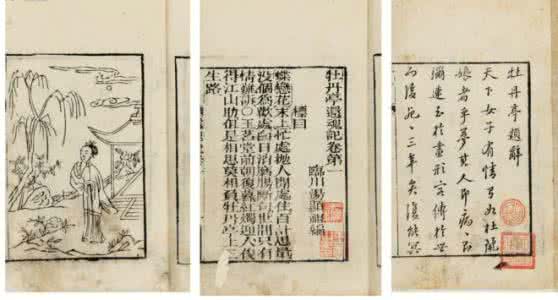 牡丹亭還魂記卷第一
臨川湯顯祖編
標目
蝶戀花末上忙處拋人閒處住百計思量
沒個爲歡處白日消磨腸斷句世間只有
情難訴○玉茗堂前朝復暮紅燭迎人俊
得江山助但是相思莫相負牡丹亭上三
生路
牡丹亭題辭
天下女子有情如杜麗
娘者乎夢其人即病即
彌連至於畫形容傳於世
而後死三年矣復能溟